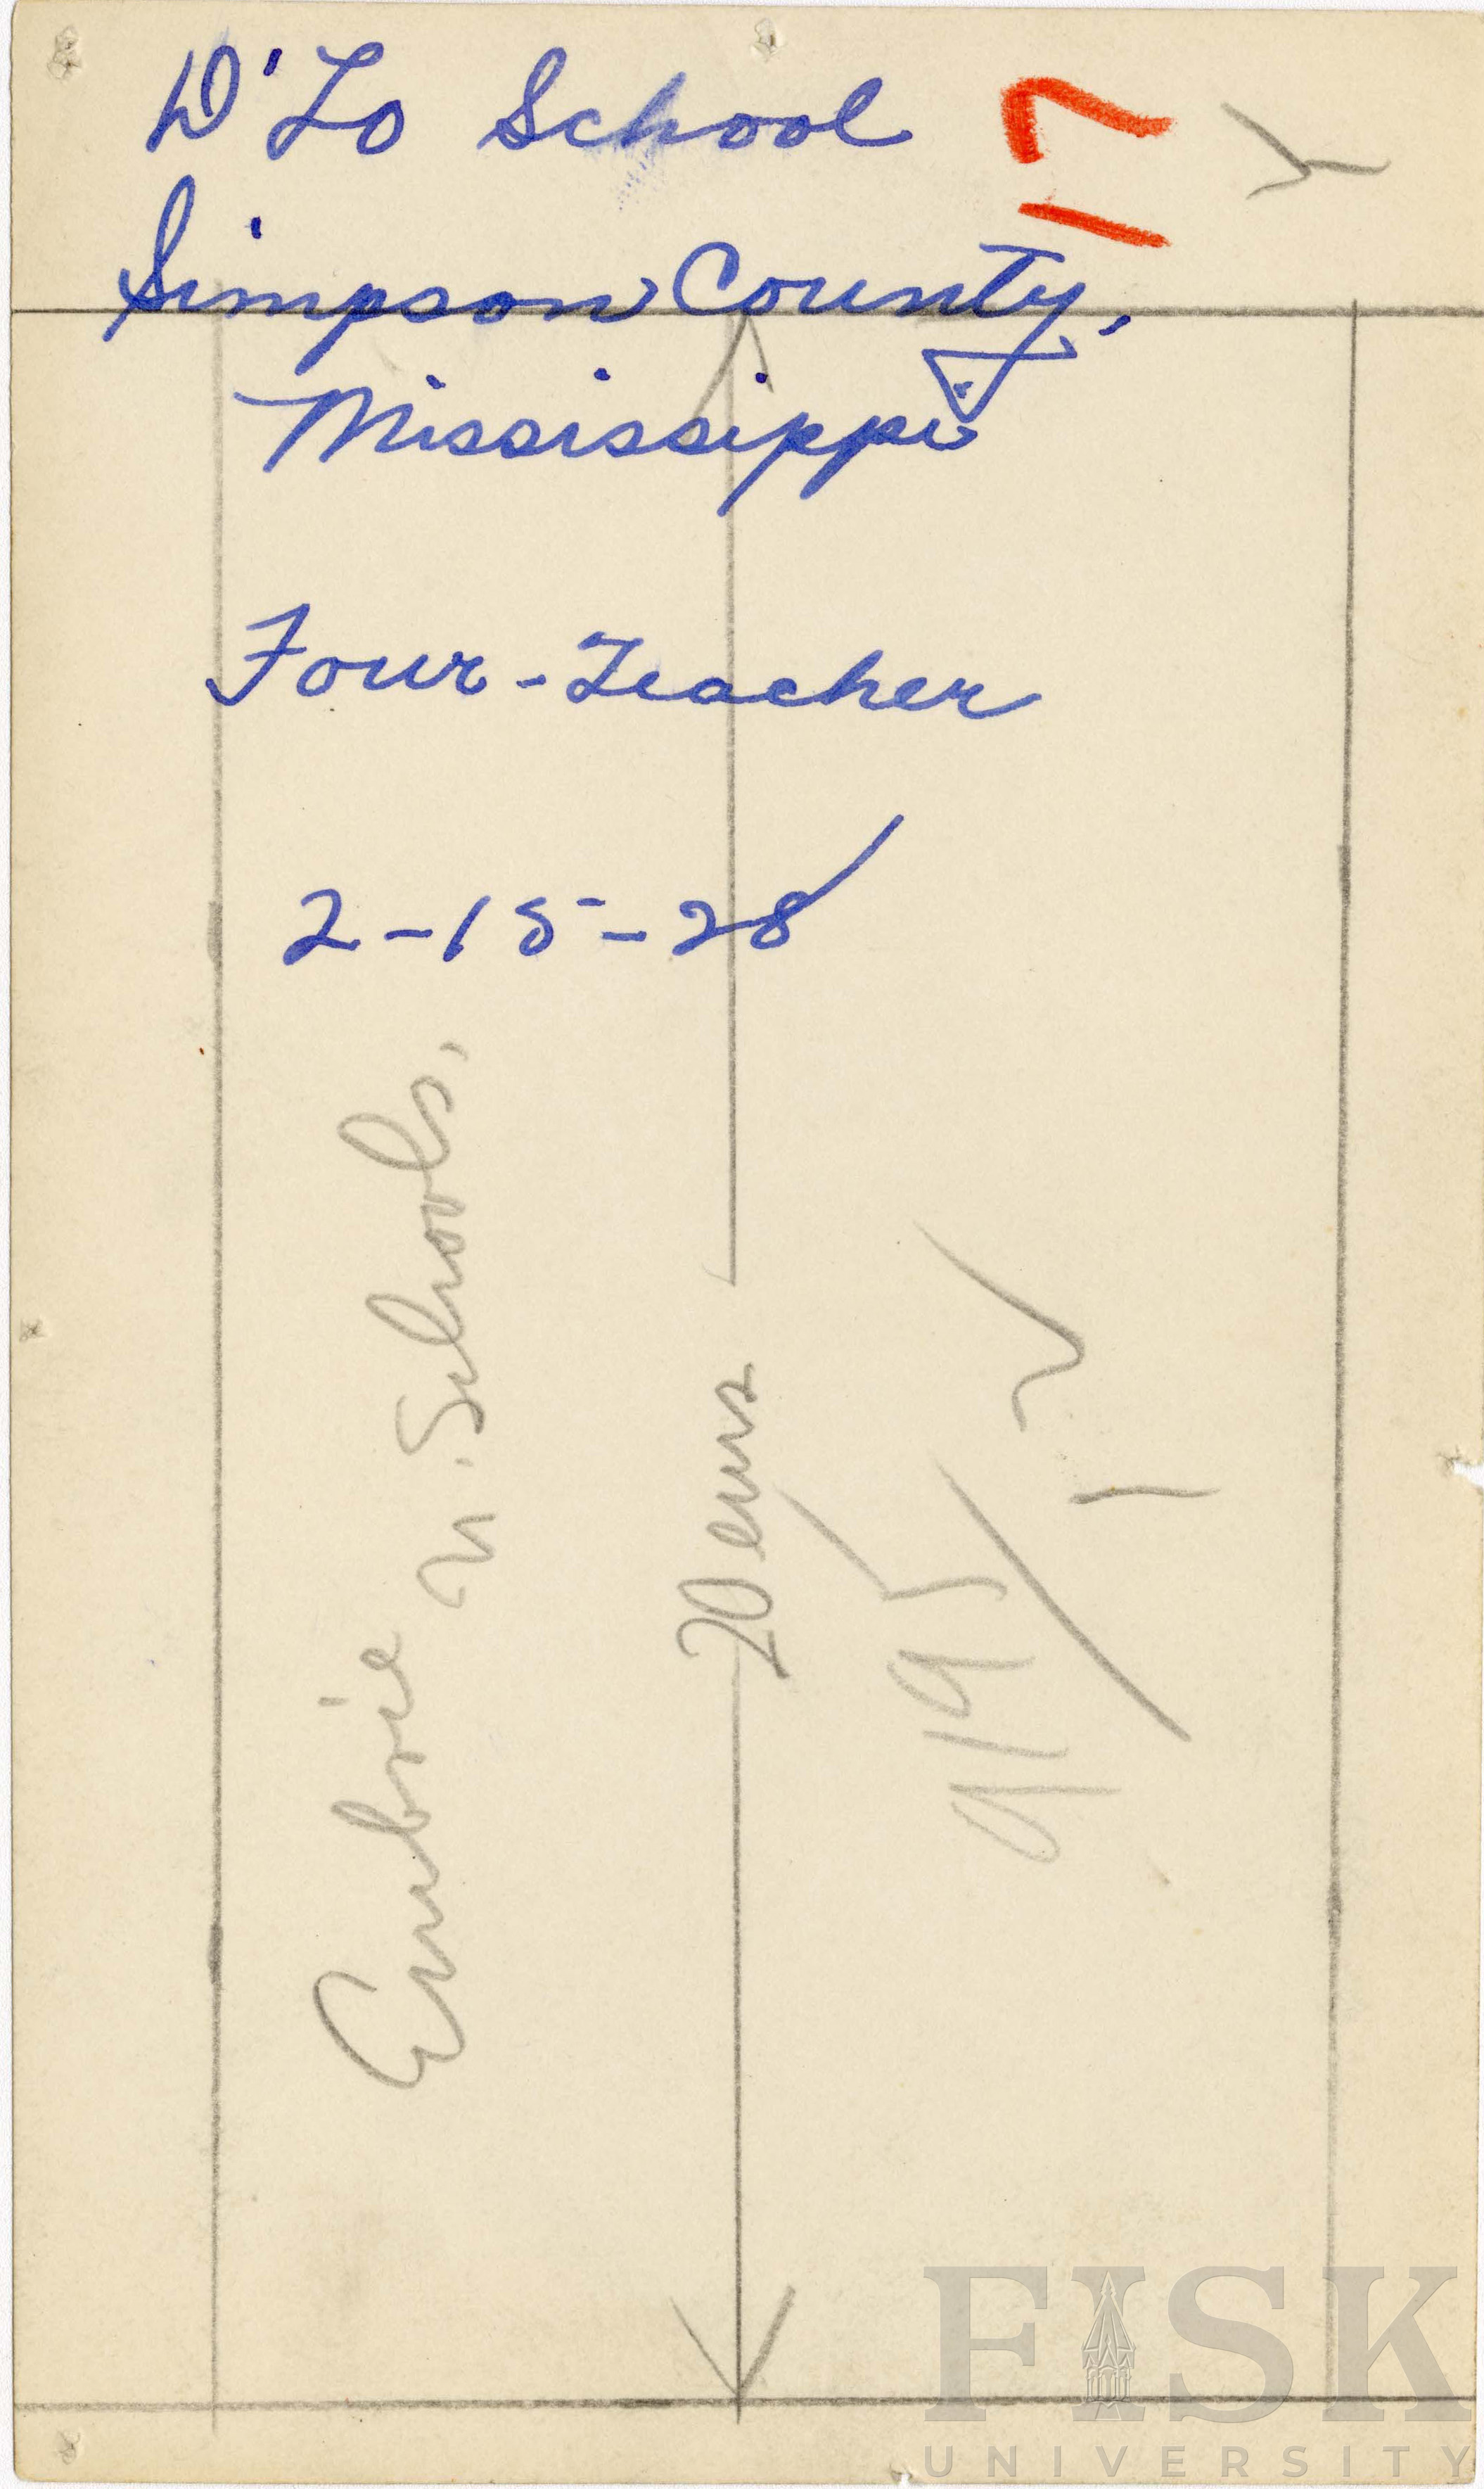 D'Lo School
17
Simpson County,
Mississippi
Four-Teacher
2-15-28
Embrie
N. Schools.
20 ems
9195
FISK
UNIVERSITY